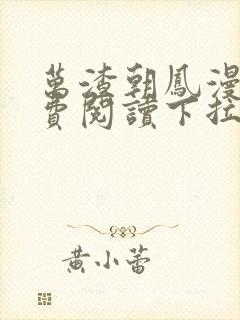 萬渣朝鳳漫
費閱讀下拉
黃小蕾